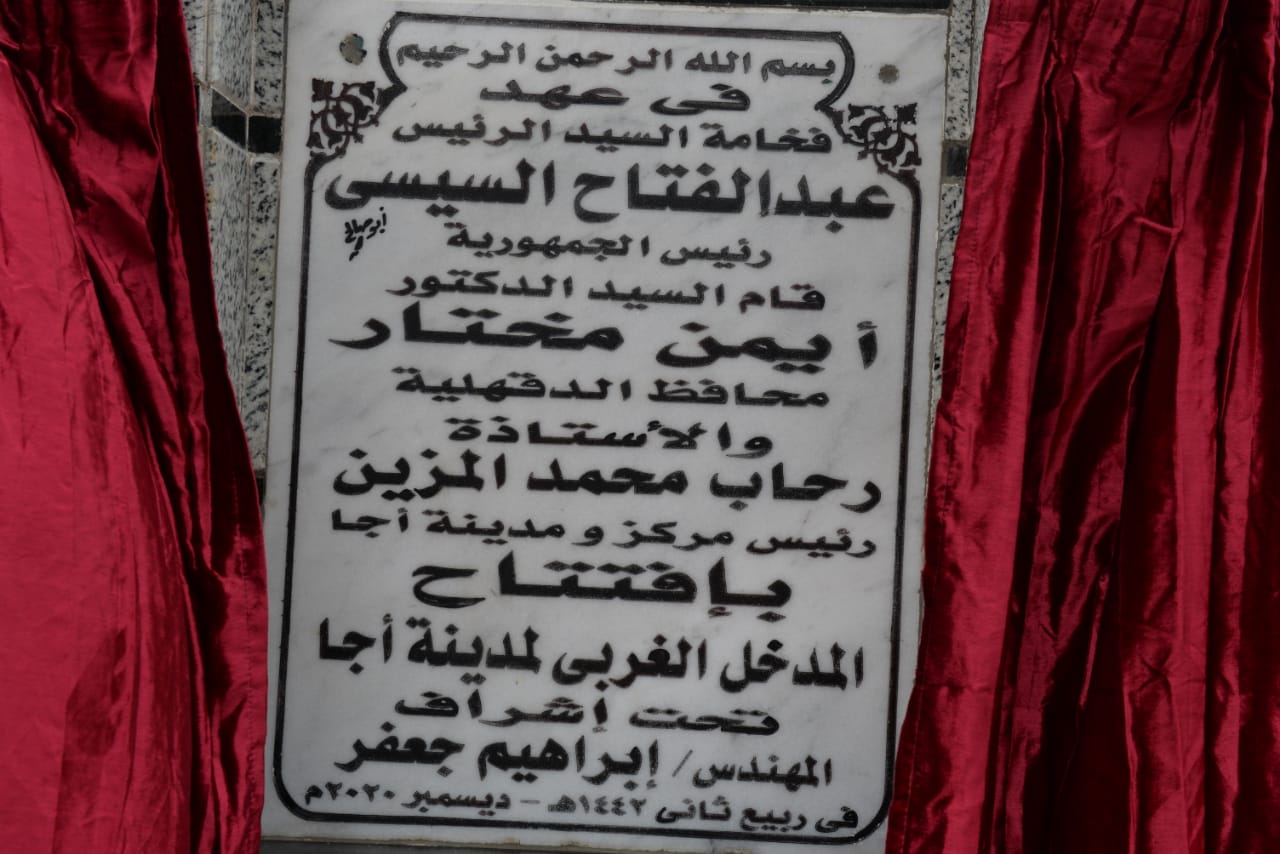 بسم الله الرحمن الرحيم
فى عهد
فخامة السيد الرئيس
عبدالفتاح السيسى
رئيس الجمهورية
قام السيد الدكتور
أيمن مختار
محافظ الدقهلية
والأستاذة
رحاب محمد المزين
رئيس مركز و مدينة أجا
بإفتتاح
المدخل الغربى لمدينة أجا
تحت إشراف
المهندس/ إبراهيم جعفر
فى ربيع ثانى ١٤٤٢هـ - ديسمبر ٢٠٢٠م